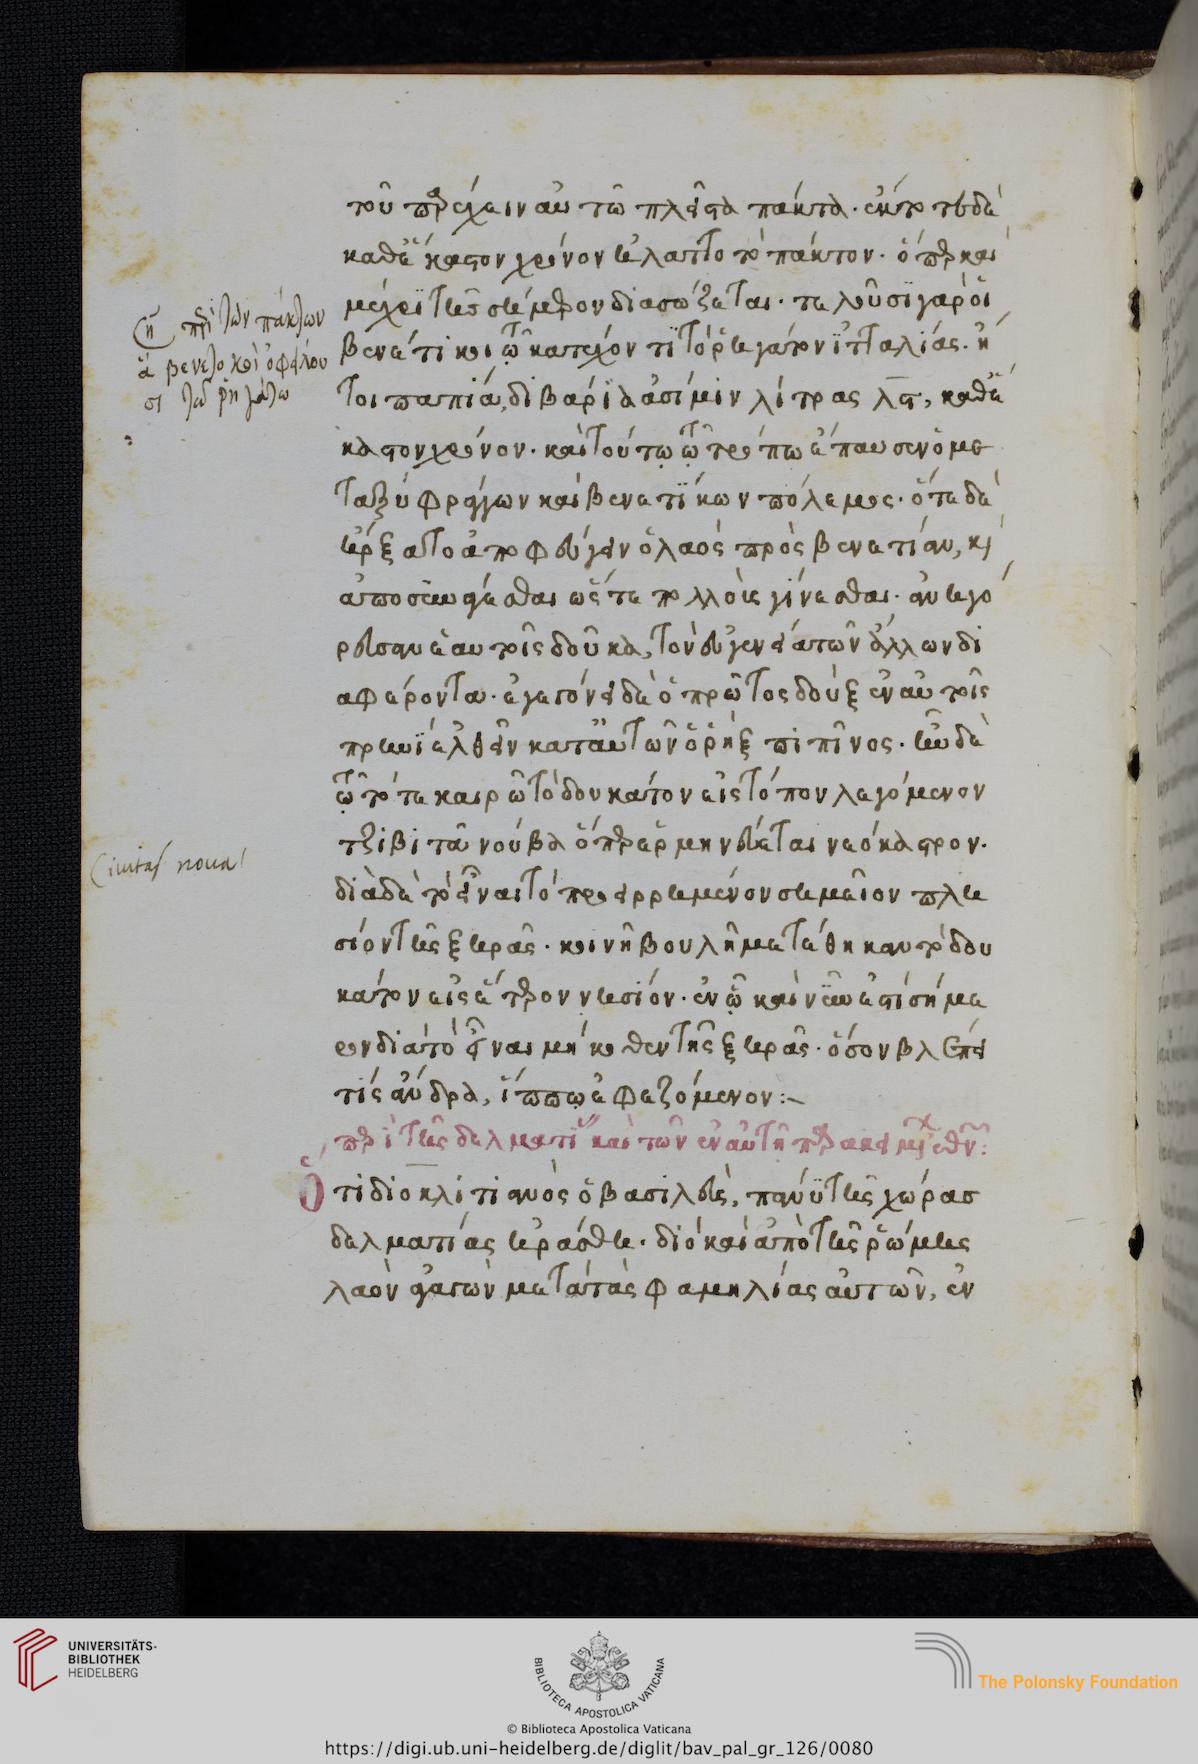 τοῦ παρέχειν αὐτῶ πλεῖστα πάκτα. ἔκτοτε δὲ
καθέκαστον χρόνον ἠλαττο τὸ πάκτον. ὅπερ καὶ
μέχρι τῆς σήμερον διασώζεται. τελοῦσι γὰρ οἱ
βενέτικοι τῶ κατέχοντι τὸ ῥηγάτον ἰταλίας. ἤ
τοι παπιά, διβάρια ἀσίμιν λίτρας λϛ, καθέ
καστον χρόνον. καὶ τούτω τῶ τρόπω ἔπαυσεν ὁ με
ταξύ φράγγων καὶ βενετίκων πόλεμος. ὅτε δὲ
ἤρξατο ἀποφεύγειν ὁ λαὸς πρὸς βενετίαν, κ
ἀποσυνάγεσθαι ὥστε πολλοὺς γίνεσθαι. ἀνηγό
ρευσαν ἑαυτοῖς δοῦκα, τὸν εὐγενεία τῶν ἄλλων δι
αφέροντα. ἐγεγόνει δὲ ὁ πρῶτος δοὺξ ἐν αὐτοῖς
πρινὴ ἐλθεῖν κατ' αὐτῶν ὁ ῥὴξ πιπῖνος. ἦν δὲ
τῶ τότε καιρῶ τὸ δουκάτον εἰς τόπον λεγόμενον
τζιβιτὰ νούβα ὅπερ ἑρμηνεύεται νεόκαστρον.
διὰ δὲ τὸ εἶναι τὸ προειρρημένον νησίον πλη
σίον τῆς ξηρᾶς. κοινῆ βουλῆ μετέθηκαν τὸ δου
κάτον εἰς ἕτερον νησίον. ἐν ῶ καὶ νῦν ἐστὶ σήμε
ρον διὰ τὸ εἶναι μήκοθεν τῆς ξηρᾶς. ὅσον βλέπει
τίς ἄνδρα, ἵππω ἐφεζόμενον:-
περὶ τῆς δελματί καὶ τῶν ἐν αὐτῆ παρακειμ ἐθν:
Ὅτι διοκλιτιανὸς ὁ βασιλεὺς, πάνυ τῆς χώρας
δελματίας ἠράσθη. διὸ καὶ ἀπὸ τῆς ῥώμης
λαὸν ἀγαγὼν μετὰ τὰς φαμηλίας αὐτῶν, ἐν
ση περὶ τῶν πάκτων
ἁ βενετοι ὀφείλου
σι τῶ ῥηγάτω
Civitas nova
UNIVERSITÄTS-
BIBLIOTHEK
HEIDELBERG
BIBLIOTECA APOSTOLICA VATICANA
© Biblioteca Apostolica Vaticana
The Polonsky Foundation
https://digi.ub.uni-heidelberg.de/diglit/bav_pal_gr_126/0080